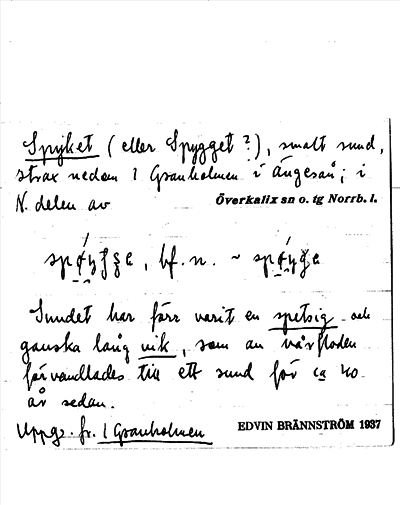 Spyket (eller Spygget ?), smalt sund,
strax nedom 1 Granholmen i Ängesån; i
N. delen av Överkalix sn o. tg Norrb. l.
bf. n. ~
Sundet har förr varit en spetsig och
ganska lång vik, som av vårfloden
förvandlades till ett sund för ca 40
år sedan.
Uppg. fr. 1 Granholmen EDVIN BRÄNNSTRÖM 1937